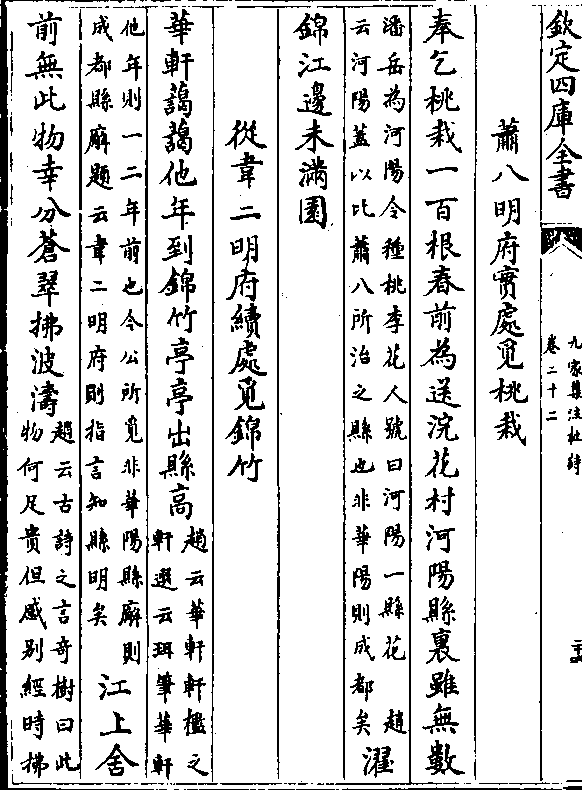 欽定四庫全書
九家集注杜詩
卷二十二
蕭八明府實處覓桃栽
奉乞桃栽一百根春前為送浣花村河陽縣裏雖無數
潘岳為河陽令種桃李花人號曰河陽一縣花　趙
云河陽蓋以比蕭八所治之縣也非華陽則成都矣
濯
錦江邊未滿園
從韋二明府續處覓錦竹
華軒藹藹他年到錦竹亭亭出縣高
趙云華軒軒檻之
軒選云珥筆華軒
他年則一二年前也今公所覓非華陽縣廨則
成都縣廨題云韋二明府則指言知縣明矣
江上舍
前無此物幸分蒼翠拂波濤
趙云古詩之言奇樹曰此
物何足貴但感别經時拂